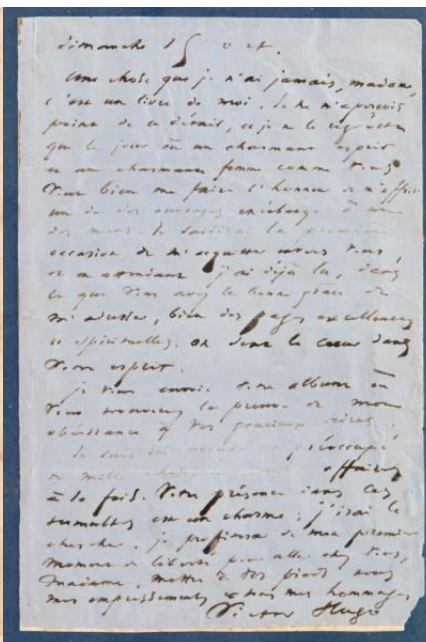 dimanche 15 oct.
Une chose que je n'ai jamais, madame,
c'est un livre de moi. Je ne m'aperçois
point de ce détail, et je ne le regrette
que le jour où un charmant esprit
et une charmante femme comme vous
veut bien me faire l'honneur de m'offrir
un de ses ouvrages en échange d'un
des miens. Je saisirai la première
occasion de m'acquitter envers vous,
et en attendant j'ai déjà lu, dans
ce que vous avez la bonne grâce de
m'adresser, bien des pages excellentes
et spirituelles. On sent le cœur dans
votre esprit.
je vous envoie votre album où
vous trouverez la preuve de mon
obéissance à vos gracieux désirs.
Je suis préoccupé
de mille affaires
à la fois. Votre présence dans ces
tumultes est un charme ; j'irai le
chercher. Je profiterai de mon premier
moment de liberté pour aller chez vous,
Madame, mettre à vos pieds tous
mes empressements et tous mes hommages
Victor Hugo